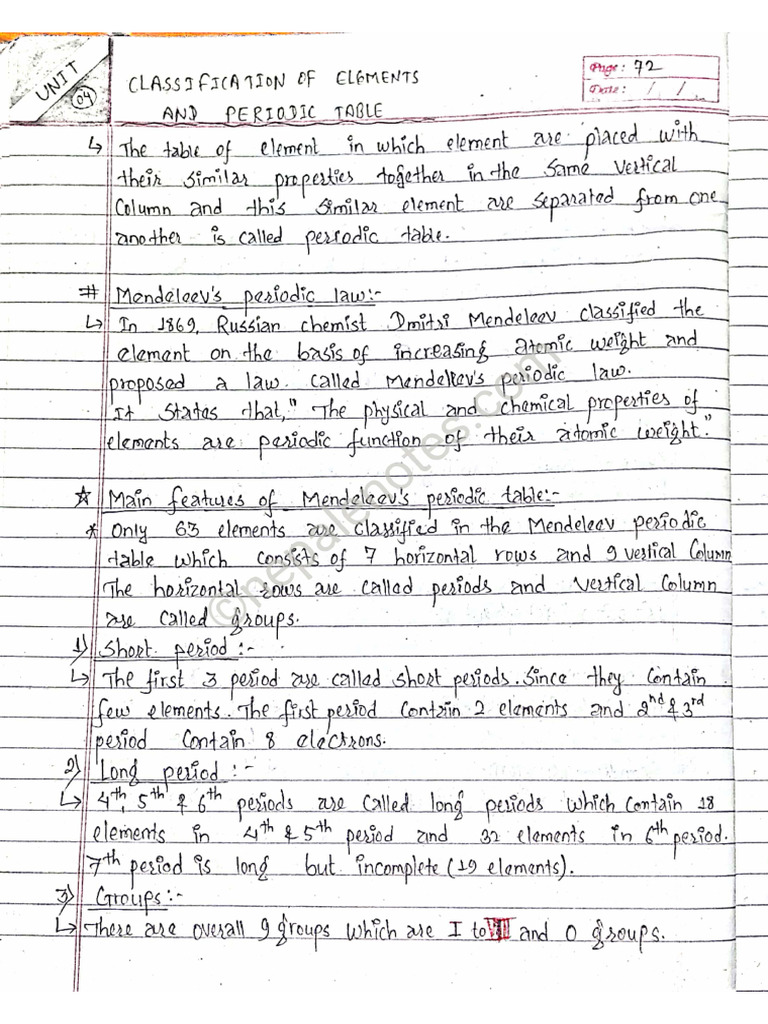 UNIT
04
CLASSIFICATION OF ELEMENTS
AND PERIODIC TABLE
Page: 72
Date: / /
↳ The table of element in which element are placed with
their similar properties together in the same vertical
Column and this similar element are separated from one
another is called periodic table.
# Mendeleev's periodic law:-
↳ In 1869, Russian chemist Dmitri Mendeleev classified the
element on the basis of increasing atomic weight and
proposed a law. Called Mendeleev's periodic law.
It States that," The physical and chemical properties of
elements are periodic function of their atomic weight."
☆ Main features of Mendeleev's periodic table:-
* Only 63 elements are classified in the Mendeleev periodic
table which consists of 7 horizontal rows and 9 vertical Column
The horizontal rows are called periods and vertical Column
are called groups.
1) Short period :-
↳ The first 3 period are called short periods. Since they contain
few elements. The first period contain 2 elements and 2nd & 3rd
period contain 8 electrons.
2) Long period :-
↳ 4th, 5th & 6th periods are called long periods which contain 18
elements in 4th & 5th period and 32 elements in 6th period.
7th period is long but incomplete (19 elements).
3) Groups:-
↳ There are overall 9 groups which are I to VIII and 0 groups.
©nepalenotes.com